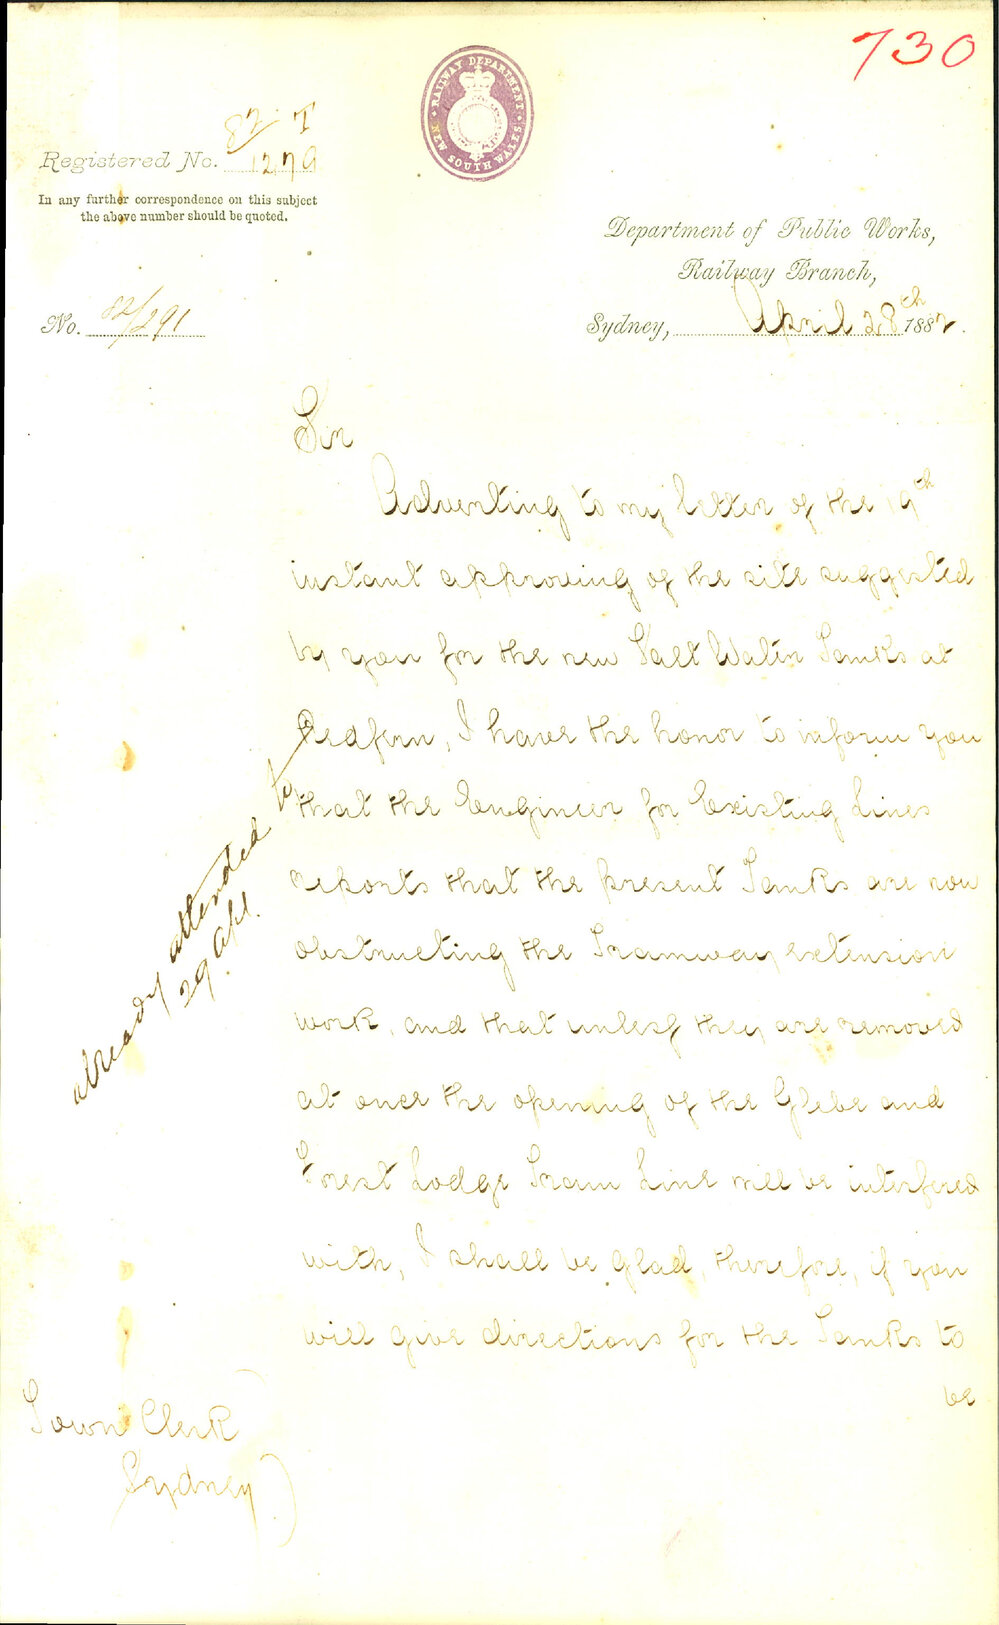 730
RAILWAY DEPARTMENT
NEW SOUTH WALES
82 T
Registered No. 1279
In any further correspondence on this subject
the above number should be quoted.
No. 82/291
Department of Public Works,
Railway Branch,
Sydney, April 28th 1882.
Sir
Adverting to my letter of the 19th
instant approving of the site suggested
by you for the new Salt Water Tanks at
Redfern, I have the honor to inform you
that the Engineer for Existing Lines
reports that the present Tanks are now
obstructing the Tramway extension
work, and that unless they are removed
at once the opening of the Glebe and
Forest Lodge Tram Line will be interfered
with, I shall be glad, therefore, if you
will give directions for the Tanks to
be
already attended to
29 Apl.
Town Clerk
Sydney